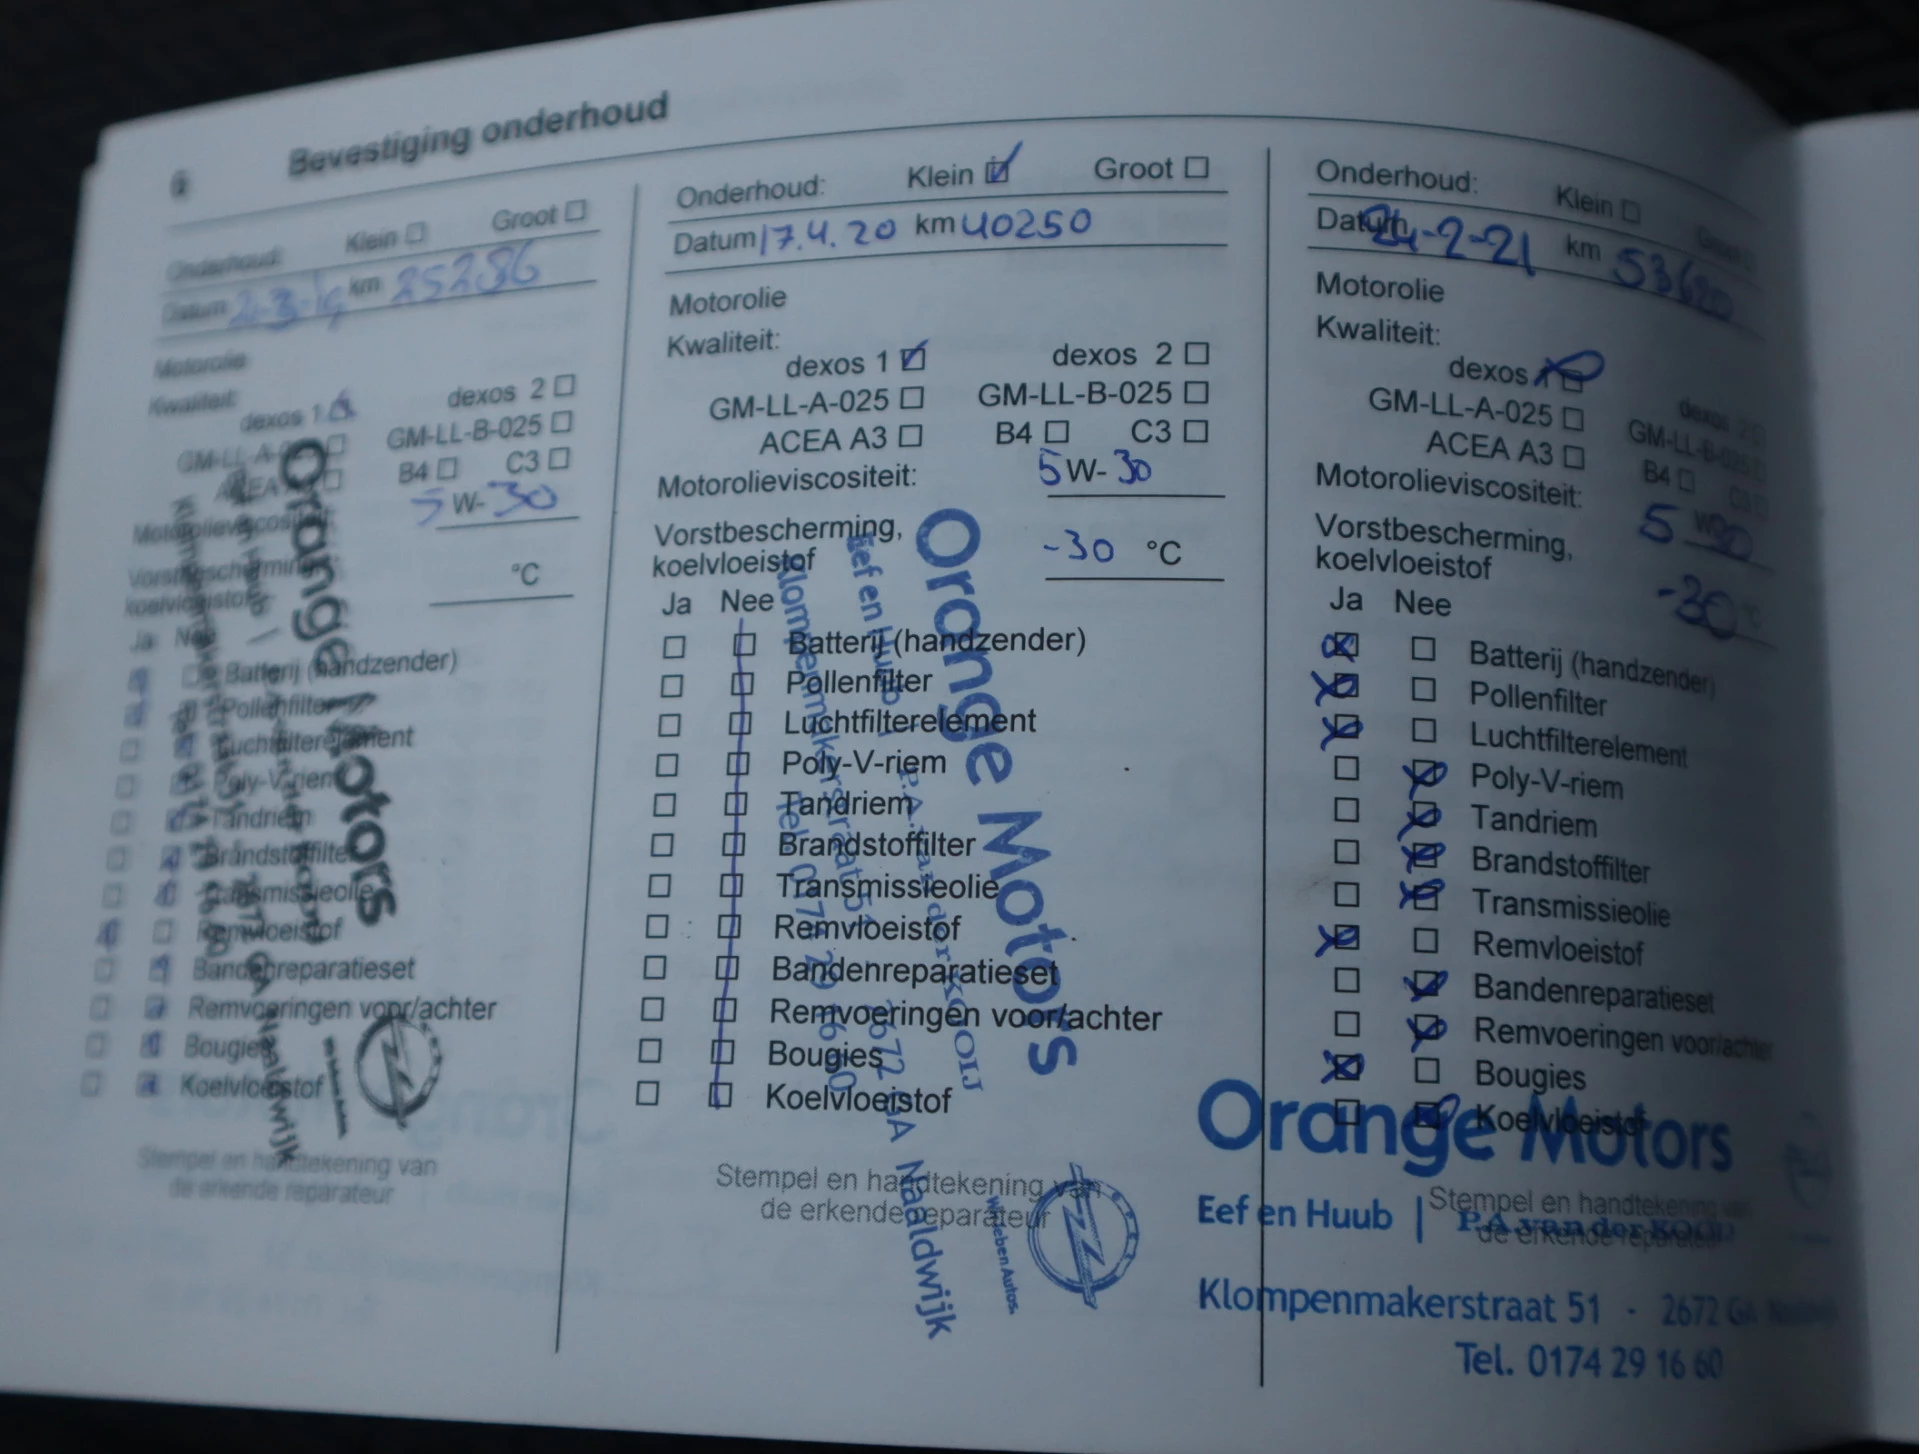 6 Bevestiging onderhoud
Onderhoud: Klein Groot
Datum 2-3-19 km 25286
Motorolie
Kwaliteit:
dexos 1 dexos 2
GM-LL-A- GM-LL-B-025
ACEA B4 C3
Motorolieviscositeit: 5 W- 30
Vorstbescherming,
koelvloeistof °C
Ja Nee
Batterij (handzender)
Pollenfilter
Luchtfilterelement
Poly-V-riem
Tandriem
Brandstoffilter
Transmissieolie
Remvloeistof
Bandenreparatieset
Remvoeringen voor/achter
Bougies
Koelvloeistof
Stempel en handtekening van
de erkende reparateur
Orange Motors
Naaldwijk
Onderhoud: Klein Groot
Datum 17.4.20 km 40250
Motorolie
Kwaliteit:
dexos 1 dexos 2
GM-LL-A-025 GM-LL-B-025
ACEA A3 B4 C3
Motorolieviscositeit: 5 W- 30
Vorstbescherming,
koelvloeistof -30 °C
Ja Nee
Batterij (handzender)
Pollenfilter
Luchtfilterelement
Poly-V-riem
Tandriem
Brandstoffilter
Transmissieolie
Remvloeistof
Bandenreparatieset
Remvoeringen voor/achter
Bougies
Koelvloeistof
Stempel en handtekening van
de erkende reparateur
Orange Motors
Eef en Huub | P.A. van der KOOIJ
Klompenmakerstraat 51 2672 GA Naaldwijk
Tel. 0174 29 16 60
Wij leben Autos.
Onderhoud: Klein Groot
Datum 24-2-21 km
Motorolie
Kwaliteit:
dexos 1 dexos 2
GM-LL-A-025 GM-LL-B-025
ACEA A3 B4 C3
Motorolieviscositeit: 5 W 30
Vorstbescherming,
koelvloeistof -30 °C
Ja Nee
Batterij (handzender)
Pollenfilter
Luchtfilterelement
Poly-V-riem
Tandriem
Brandstoffilter
Transmissieolie
Remvloeistof
Bandenreparatieset
Remvoeringen voor/achter
Bougies
Koelvloeistof
Orange Motors
Stempel en handtekening van
de erkende reparateur
Eef en Huub | P.A. van der KOOIJ
Klompenmakerstraat 51 - 2672 GA
Tel. 0174 29 16 60